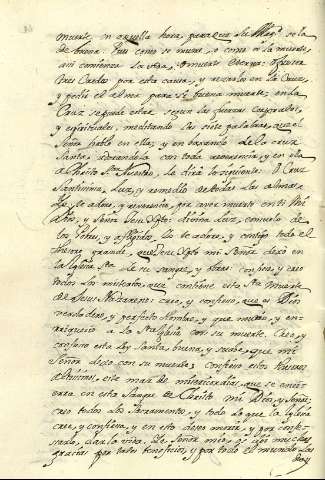 muerte, en aquella hora, para que su Mag.d se la
de buena. Pues como se muere, o como a la muerte,
assi comienza la otra, o muerte eterna:
tres Credos por esta causa, y rezarlos en la Cruz,
y pedir el alma para si buena muerte, en la
Cruz se puede estar, segun las fuerzas corporales,
y espirituales, meditando las siete palabras, que el
Señor hablò en ella; y en baxando de la cruz
Santa, besandola con toda reverencia, y en ella
a Christo S.r Nuestro, le dirà lo siguiente: O Cruz
Santissima, Luz, y remedio de todas las almas:
Yo te adoro, y reverencio, por aver muerto en ti Mi
Dios, y Señor Jesu Xpto: divina Luz, consuelo de
los Pobres, y afligidos, Yo te adoro, y contigo todo el
thesoro grande, que Jesu Xpto mi Señor dexò en
la Iglesia S.ta de su sangre, y obras confieso, y creo
todos los misterios, que contiene esta S.ta Muerte
de Jesus Nazareno: creo, y confieso, que es Dios
verdadero, y perfecto hombre, y que murio, y en-
rriqueciò a la S.ta Iglesia con su muerte. Creo, y
confieso esta ley Santa, buena, y suabe, que mi
Señor dexò con su muerte; confieso estos thesoros
divinissimos, este mar de misericordias, que se encie-
rra en esta Sangre de Christo mi Dios, y Señor:
creo todos los Sacramentos, y todo lo que la Iglesia
cree, y confiesa, y en esto deseo morir, y por confes-
sarlo, dar la vida. Yo Señor mio, os doy muchas
gracias por tales beneficios, y por todo el mundo los